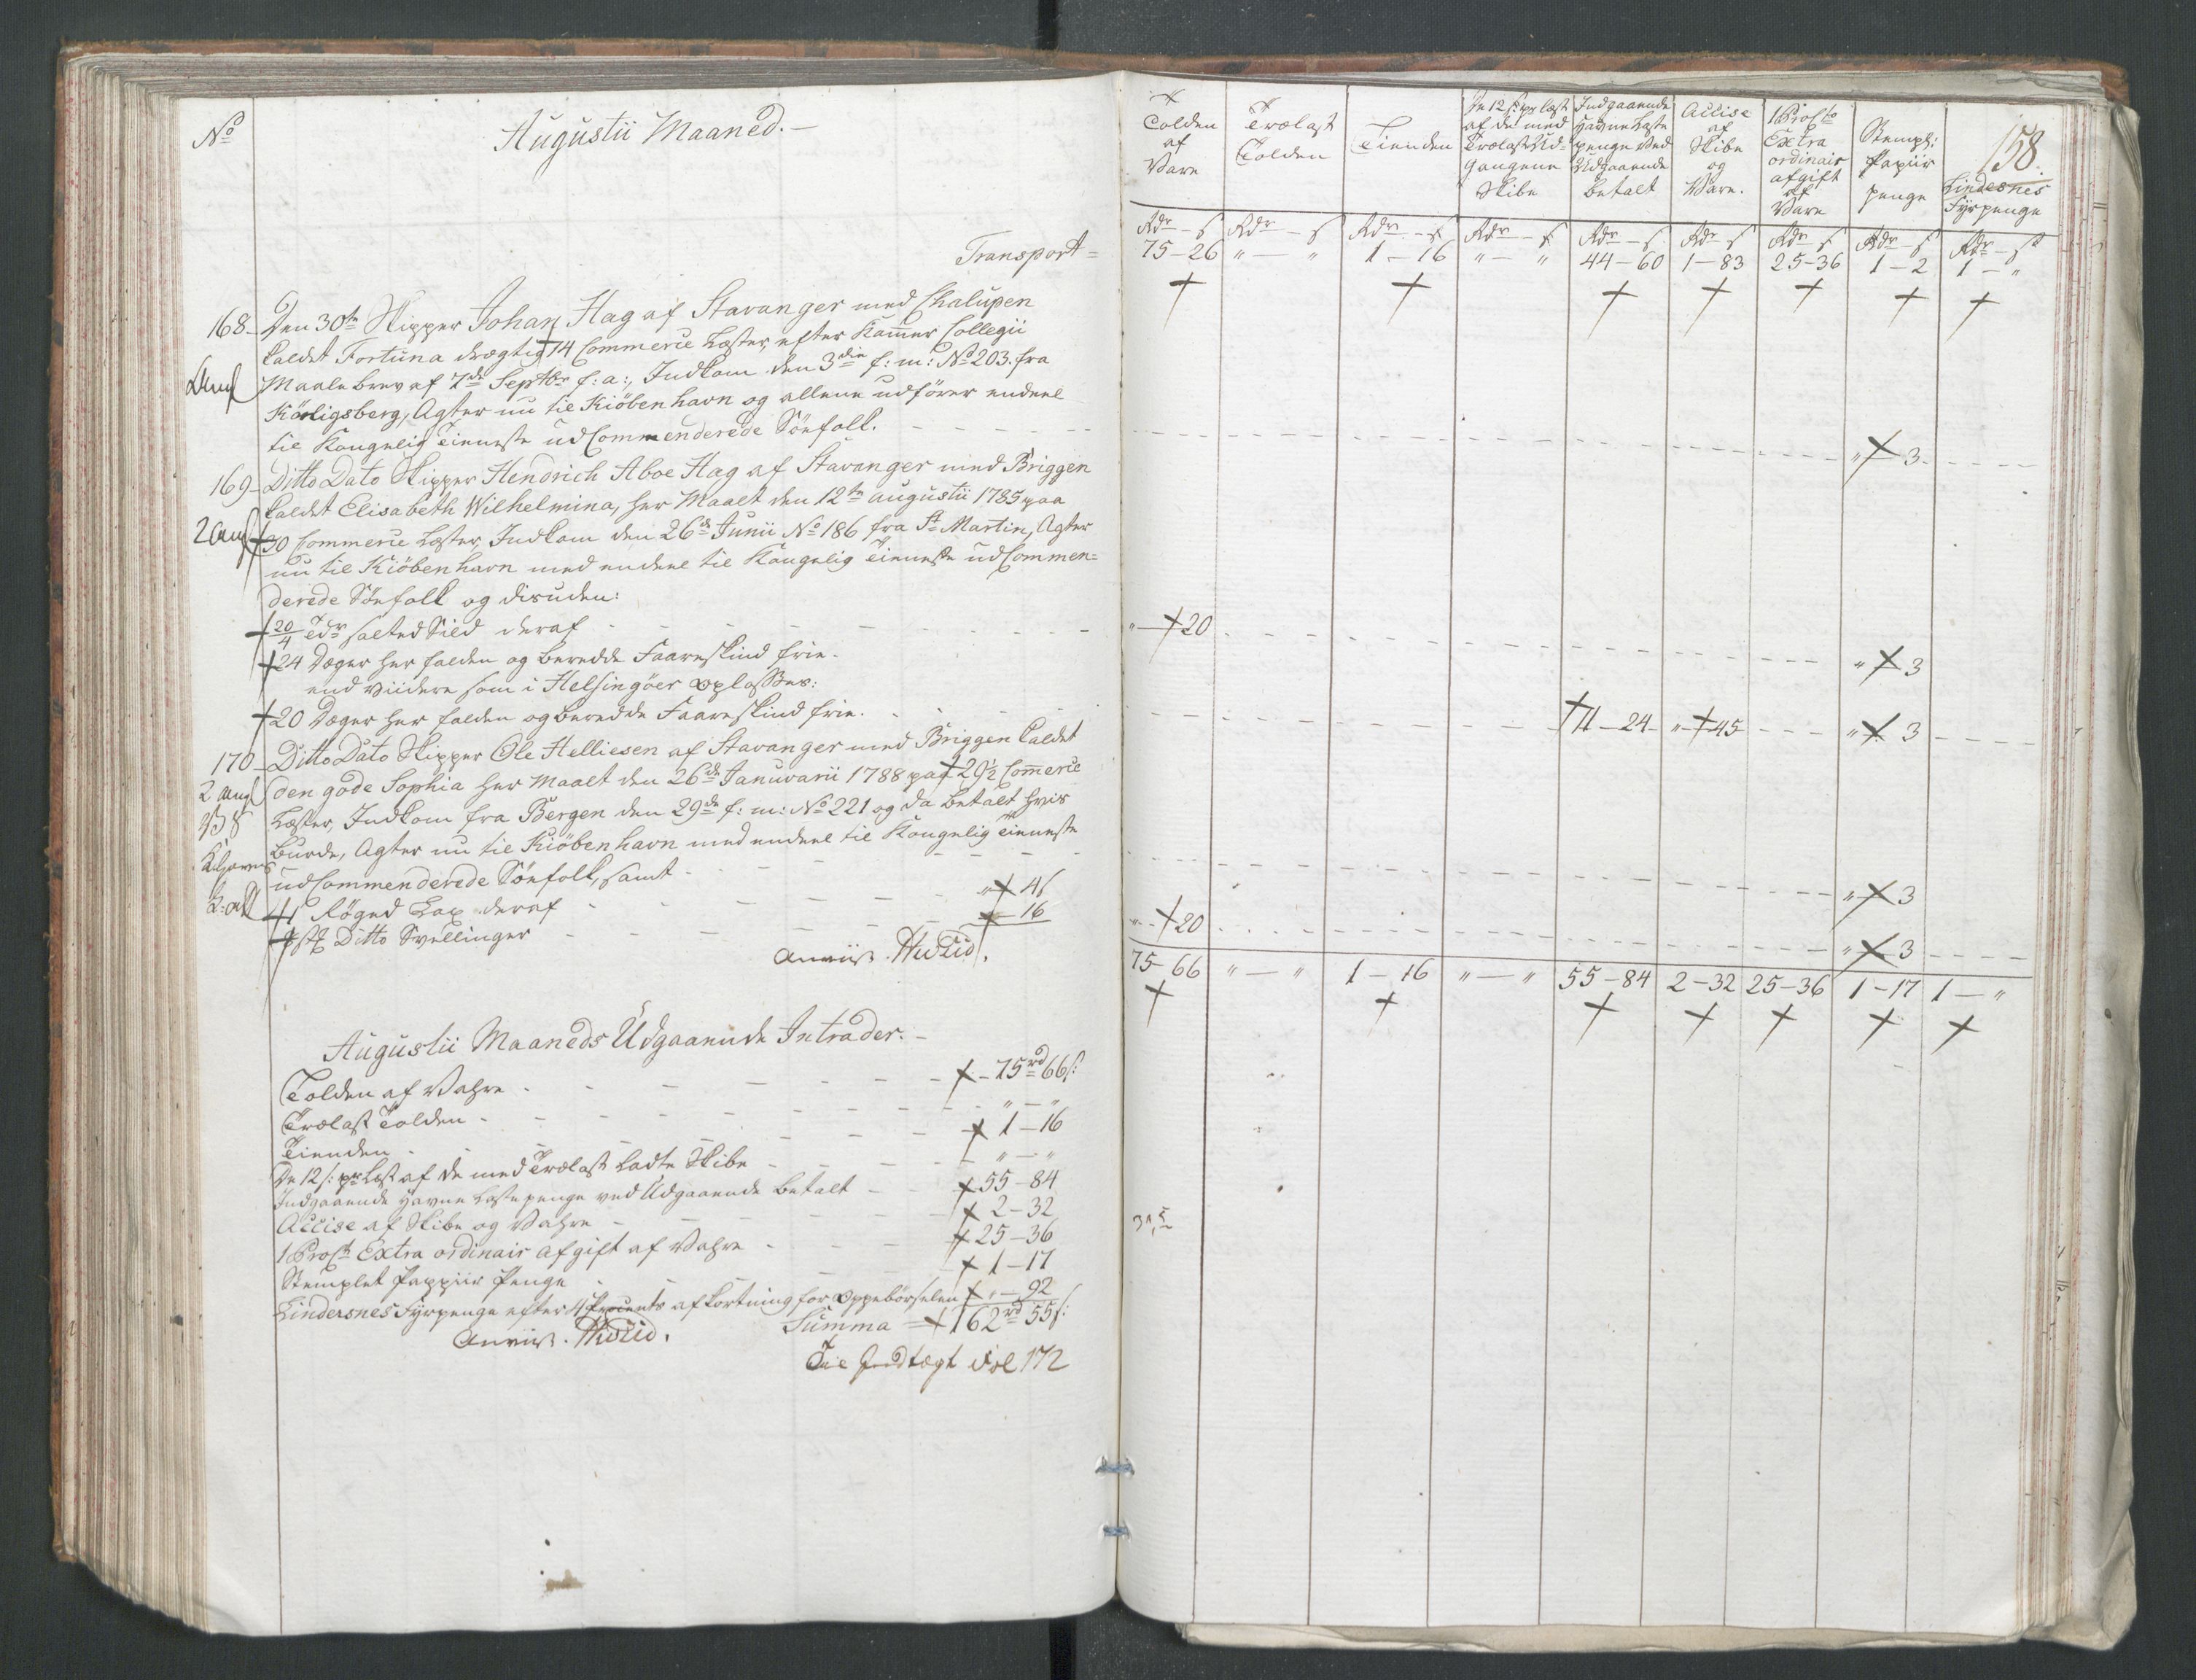 No
Augustii Maaned.
Transport =
168. Den 30te Skipper Johan Hag af Stavanger med Chalupen
kaldet Fortuna drægtig 14 Commerce Læster, efter Kammer Collegii
Maalebrev af 7de Septbr f: a:, Indkom den 3die f: m: No 203. fra
Königsberg, Agter nu til Kiöbenhavn og allene udförer endeel
til Kongelig Tieneste udCommenderede Söefolk.
169 Ditto Dato Skipper Hendrich Aboe Hag af Stavanger med Briggen
kaldet Elisabeth Wilhelmina, her Maalt den 12te Augustii 1785 paa
30 Commerce Læster, Indkom den 26de Junii No 186 fra St Martin, Agter
nu til Kiöbenhavn med endeel til Kongelig Tieneste udCommen=
derede Söefolk og desuden:
20/4 Tdr salted Sild deraf
24 Deger her falden og beredde Faareskind frie.
end viidere som i Helsingöer oplosses:
20 Deger her falden og beredde Faareskind frie.
170 Ditto Dato Skipper Ole Helliesen af Stavanger med Briggen kaldet
den gode Sophia her Maalt den 26de Januarii 1788 paa 29½ Commerce
Læster, Indkom fra Bergen den 29de f: m: No 221 og da betalt hvis
burde, Agter nu til Kiöbenhavn med endeel til Kongelig Tieneste
udCommenderede Söefolk, samt
Röged Lax deraf " 4 s
Ditto Svellinger " 16
Augustii Maaneds Udgaaende Intrader.
Tolden af Vahre 75 rd 66 s:
Trælast Tolden " — "
Tienden 1 — 16
De 12 s: pr Læst af de med Trælast Ladte Skibe " — "
Indgaaende Havne Læstepenge ved Udgaaende betalt 55 — 84
Accise af Skibe og Vahre 2 — 32
1 Procto Extra ordinair afgift af Vahre 25 — 36
Stemplet Pappiir Penge 1 — 17
Lindersnes Fyrpenge efter 4 Procents afkortning for Oppebörselen " — 92
Summa = 162 rd 55 s:
Til Indtægt Fol 172
158.
Tolden af Vare
Trælast Tolden
Tienden
De 12 s: pr Læst af de med Trælast Udgangene Skibe
Indgaaende Havne Læste penge ved Udgaaende betalt
Accise af Skibe og Vare.
1 Procto Extra ordinair afgift af Vare
Stempl: Papiir penge
Lindesnes Fyrpenge
Rdr — s Rdr — s Rdr — s Rdr — s Rdr — s Rdr s Rdr s Rdr — s Rdr — s
75 — 26 " — " 1 — 16 " — " 44 — 60 1 — 83 25 — 36 1 — 2 1 — "
" — 3
" — 20
" — 3
11 — 24 " — 45 " — 3
" — 3
" — 20
" — 3
75 — 66 " — " 1 — 16 " — " 55 — 84 2 — 32 25 — 36 1 — 17 1 — "